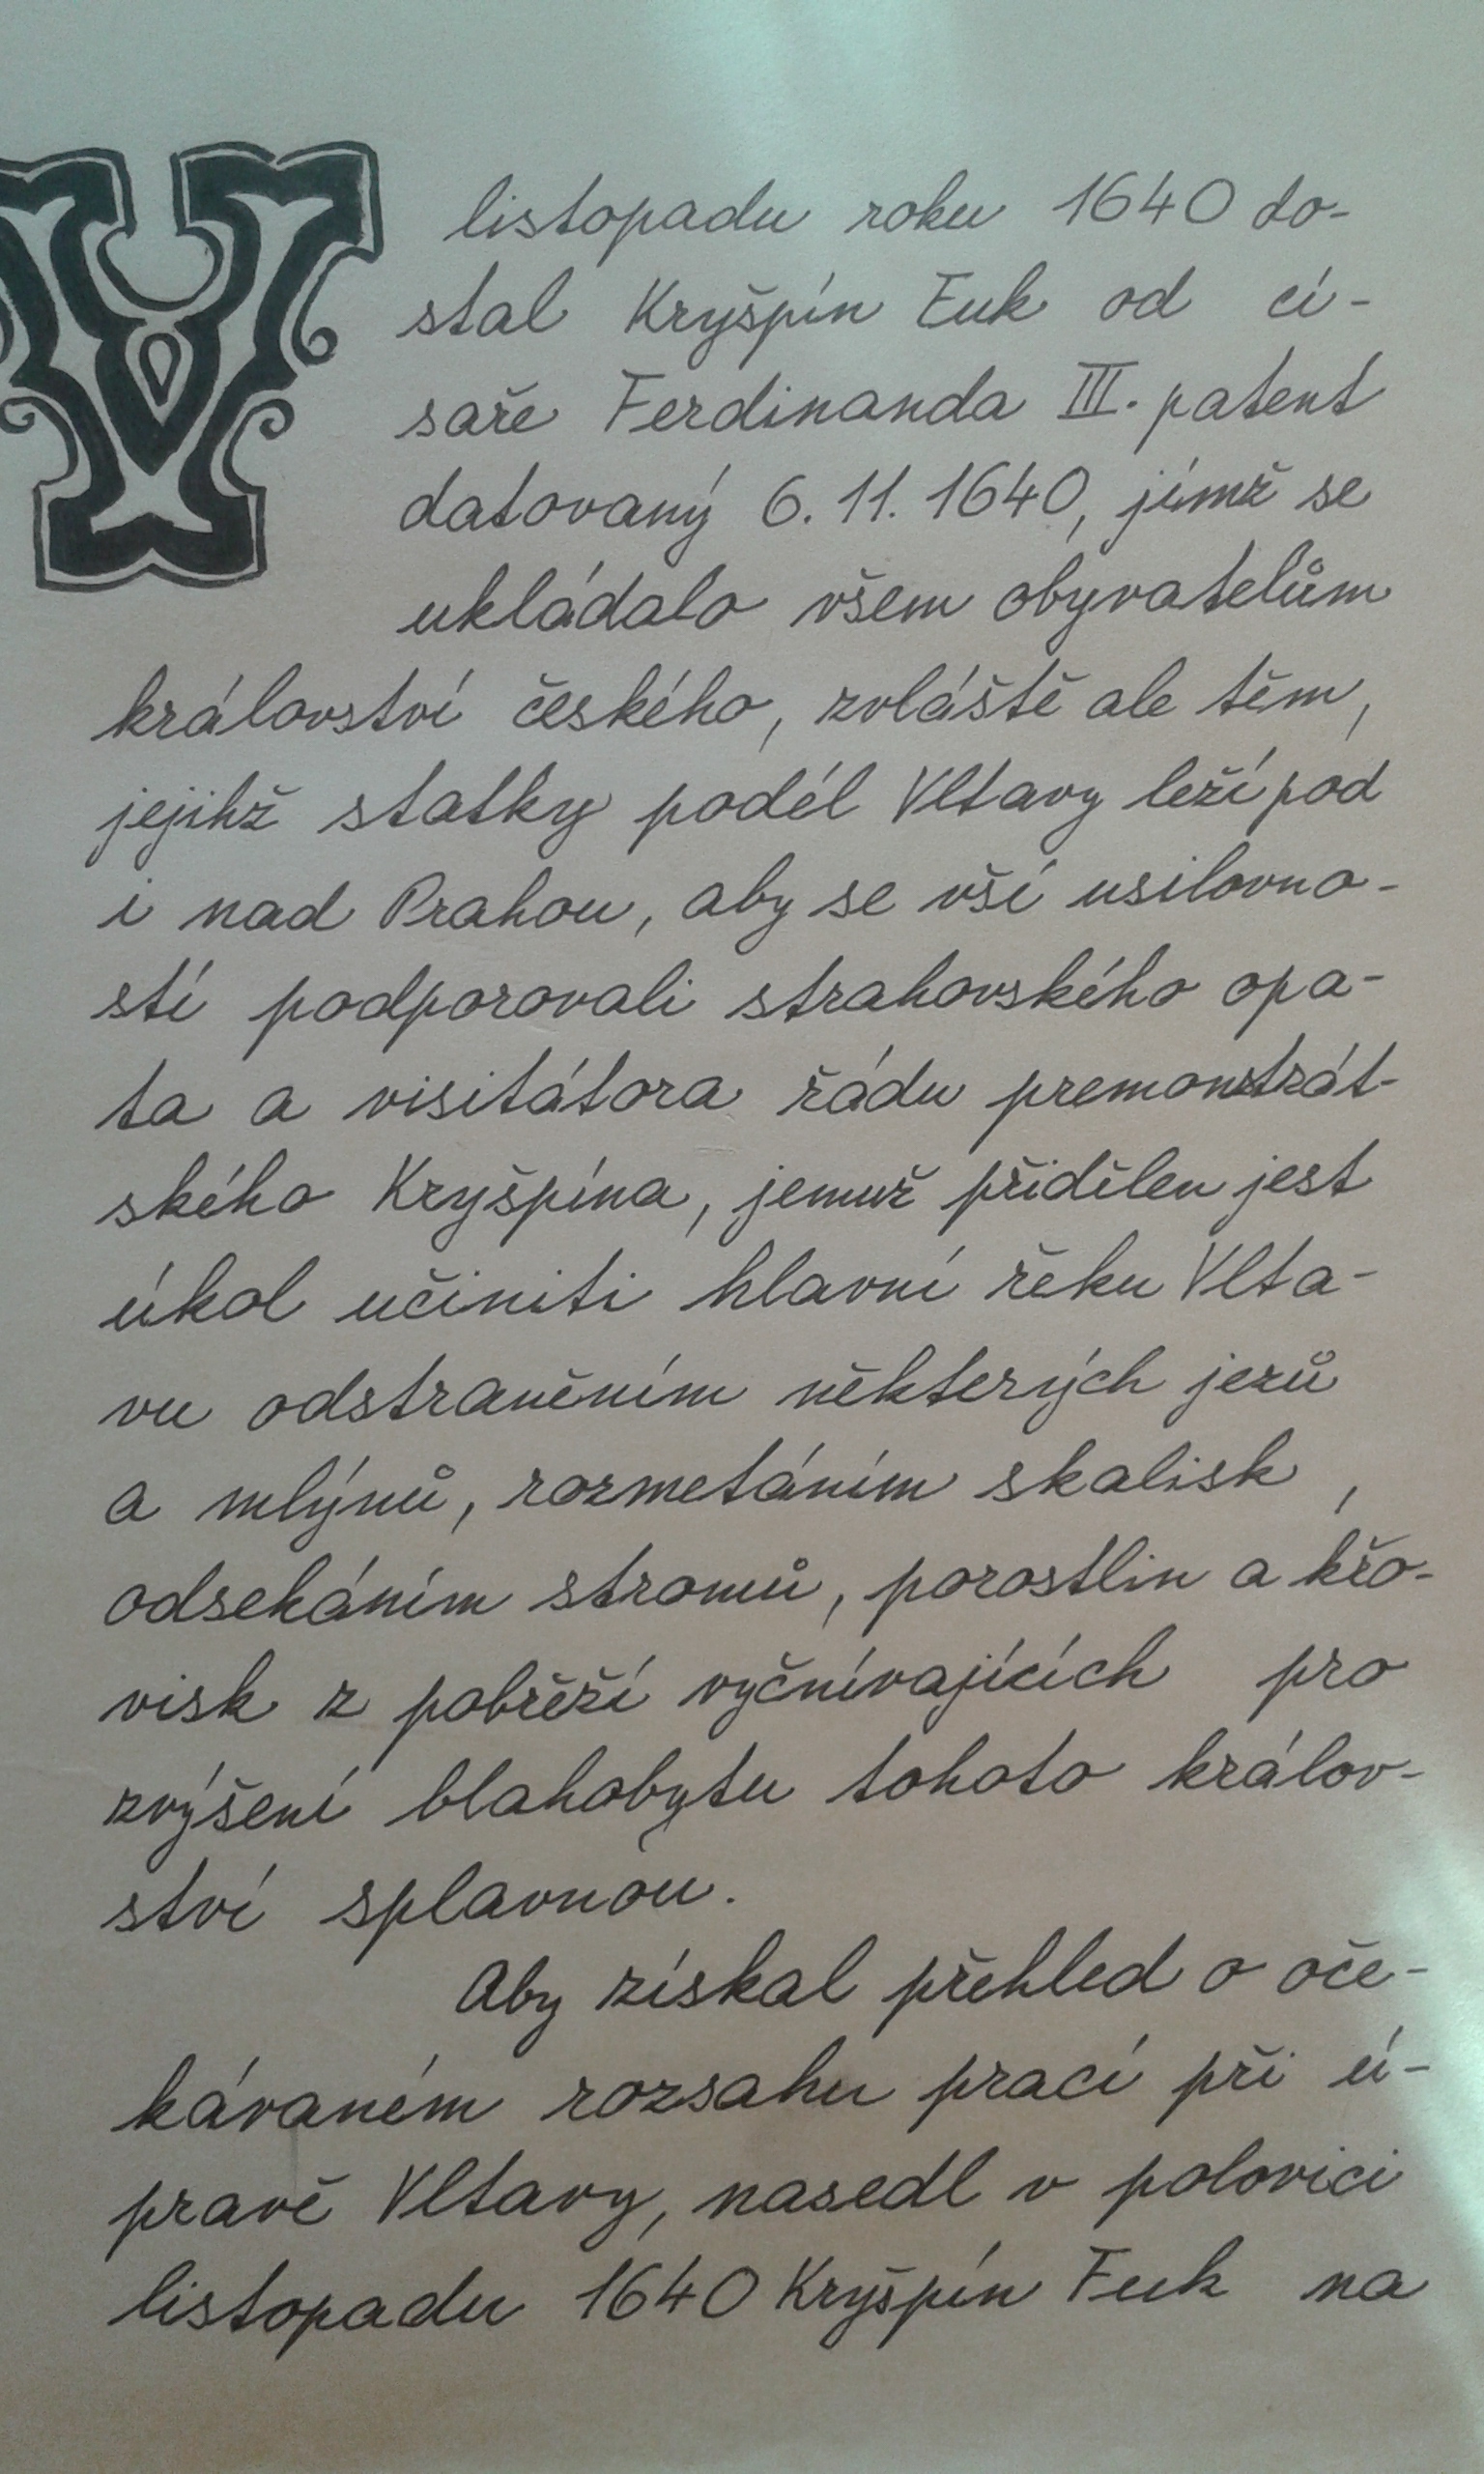 V listopadu roku 1640 do-
stal Kryšpín Fuk od cí-
saře Ferdinanda III. patent
datovaný 6. 11. 1640, jímž se
ukládalo všem obyvatelům
království českého, zvláště ale těm,
jejihž statky podél Vltavy leží pod
i nad Prahou, aby se vší usilovno-
stí podporovali strahovského opa-
ta a visitátora řádu premonstrát-
ského Kryšpína, jemuž přidělen jest
úkol učiniti hlavní řeku Vlta-
vu odstraněním některých jezů
a mlýnů, rozmetáním skalisk,
odsekáním stromů, porostlin a křo-
visk z pobřeží vyčnívajících pro
zvýšení blahobytu tohoto králov-
ství splavnou.
Aby získal přehled o oče-
kávaném rozsahu prací při ú-
pravě Vltavy, nasedl v polovici
listopadu 1640 Kryšpín Fuk na